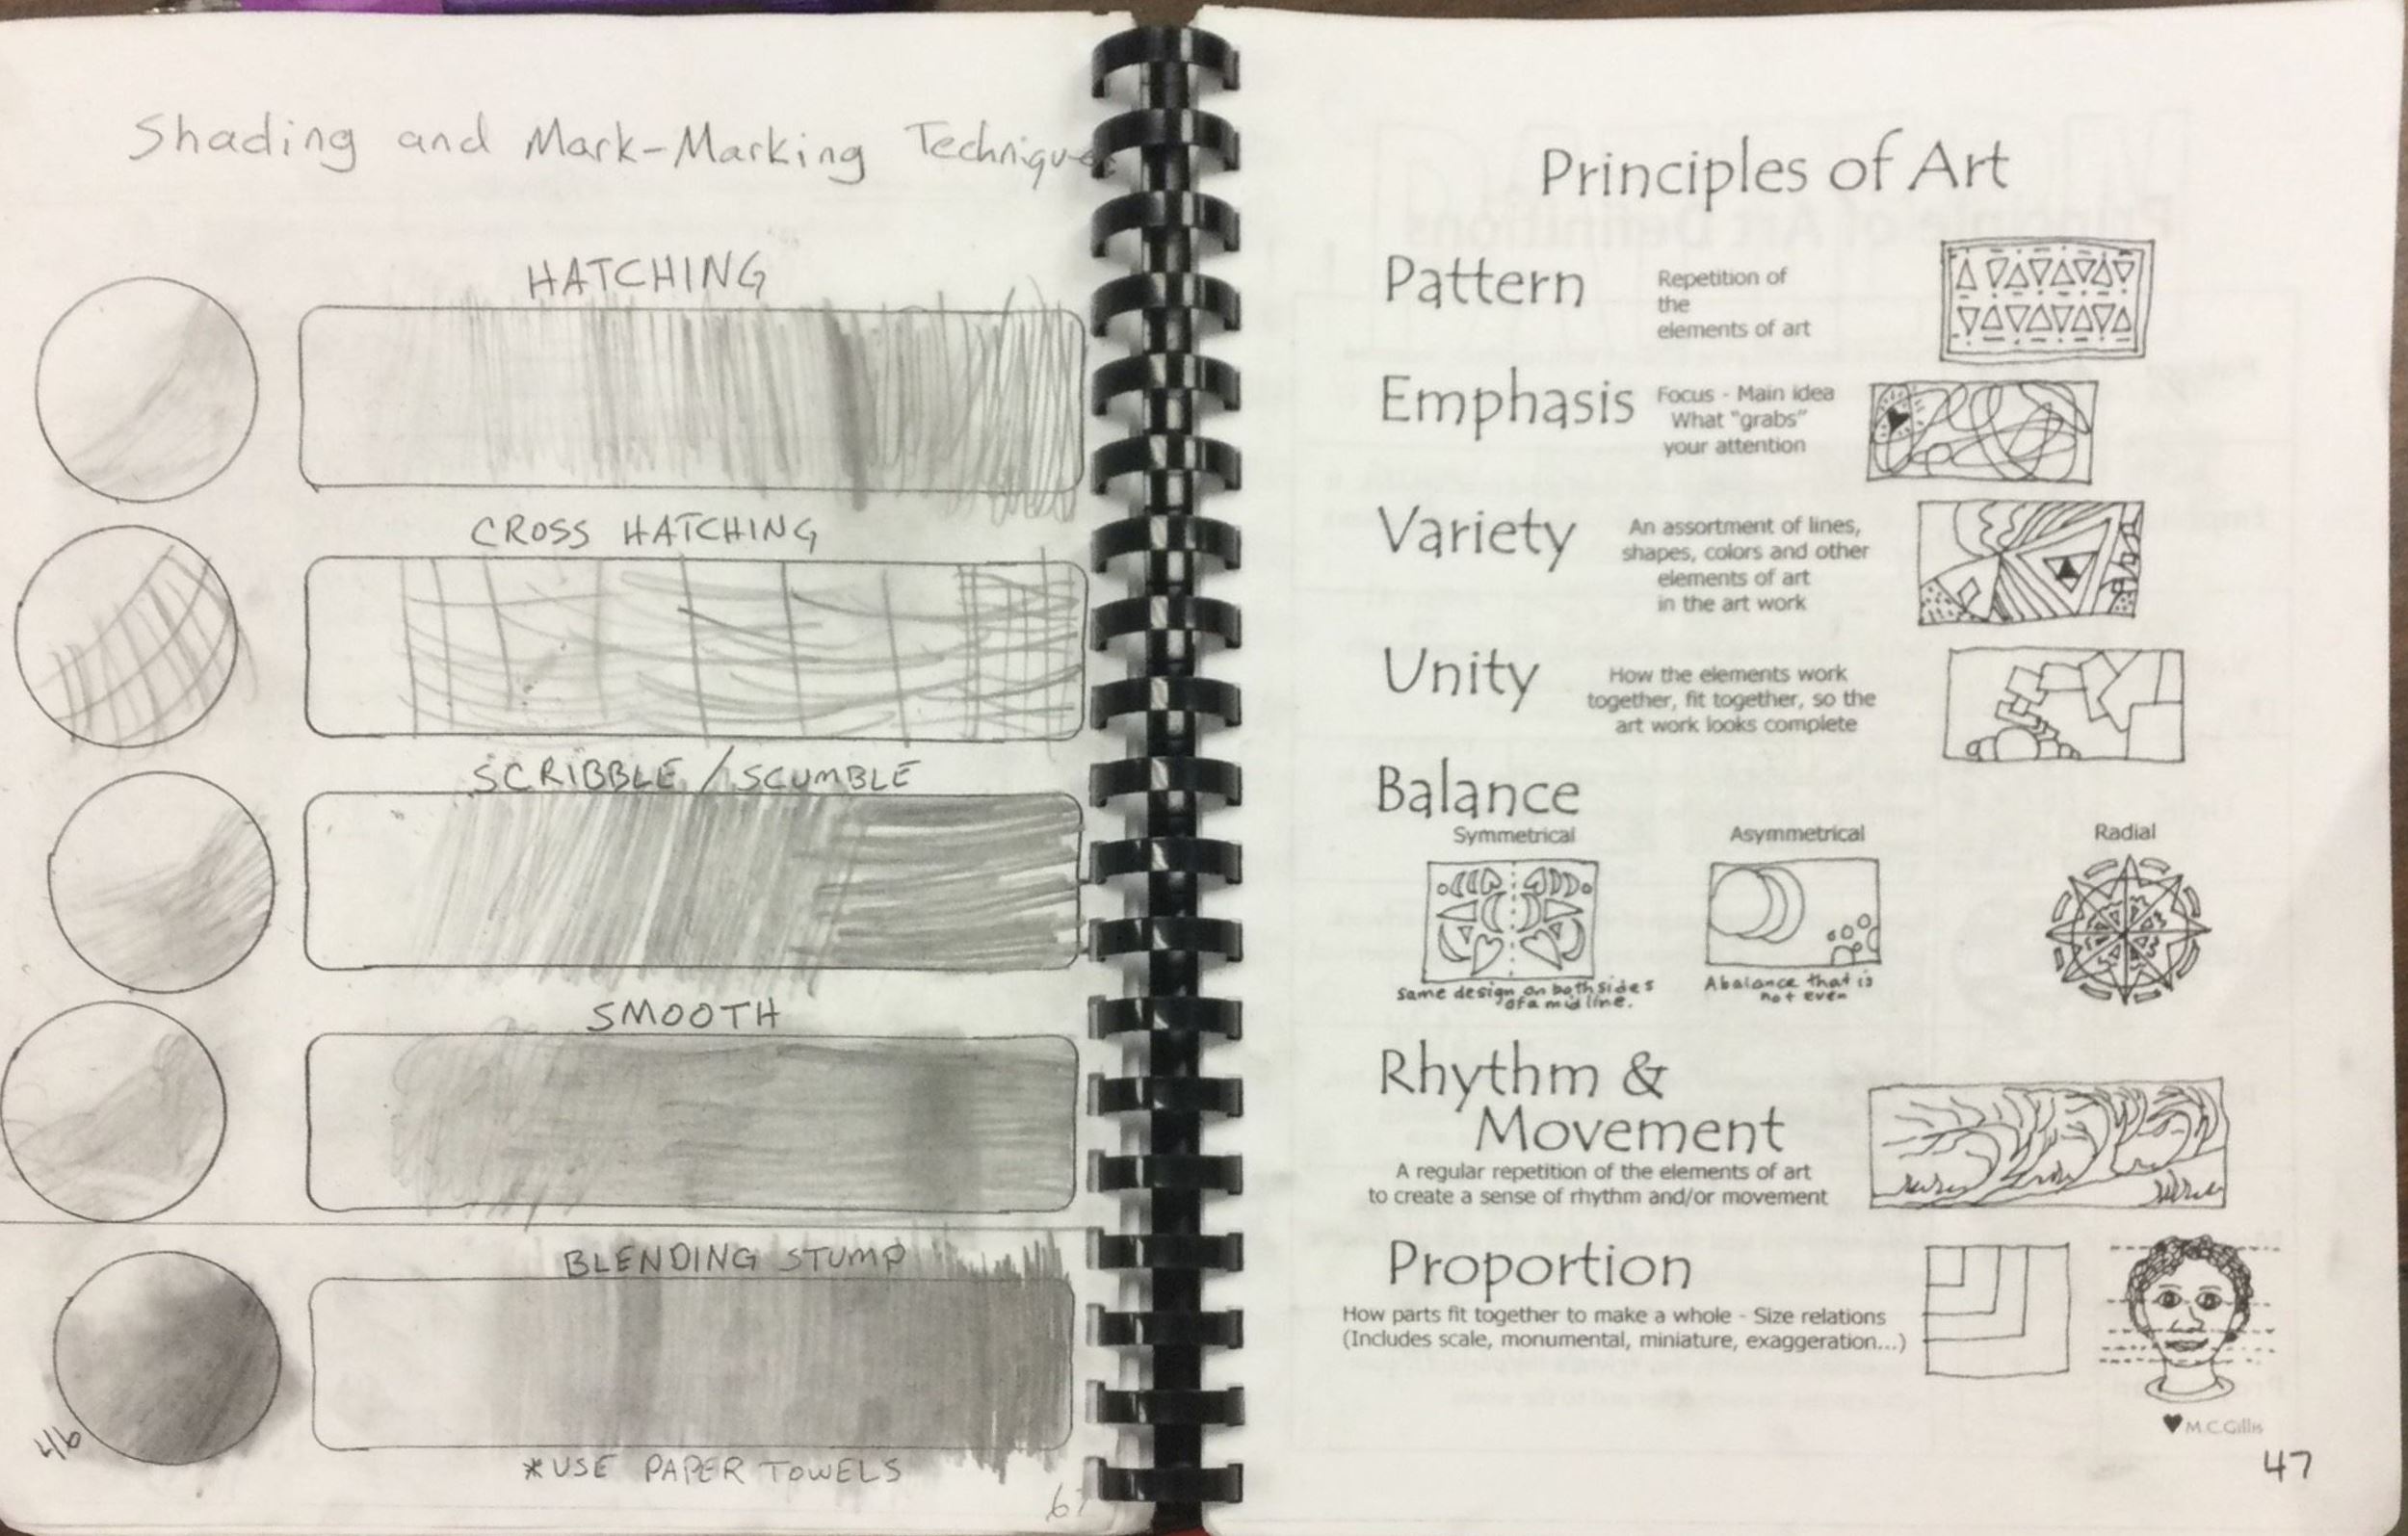 Shading and Mark-Marking Technique
HATCHING
CROSS HATCHING
SCRIBBLE / SCUMBLE
SMOOTH
BLENDING STUMP
*USE PAPER TOWELS
4/6
Principles of Art
Pattern
Repetition of
the
elements of art
Emphasis
Focus - Main idea
What "grabs"
your attention
Variety
An assortment of lines,
shapes, colors and other
elements of art
in the art work
Unity
How the elements work
together, fit together, so the
art work looks complete
Balance
Symmetrical
Asymmetrical
Radial
Same design on both sides
of a mid line.
A balance that is
not even
Rhythm &
Movement
A regular repetition of the elements of art
to create a sense of rhythm and/or movement
Proportion
How parts fit together to make a whole - Size relations
(Includes scale, monumental, miniature, exaggeration...)
♥ M.C.Gillis
47